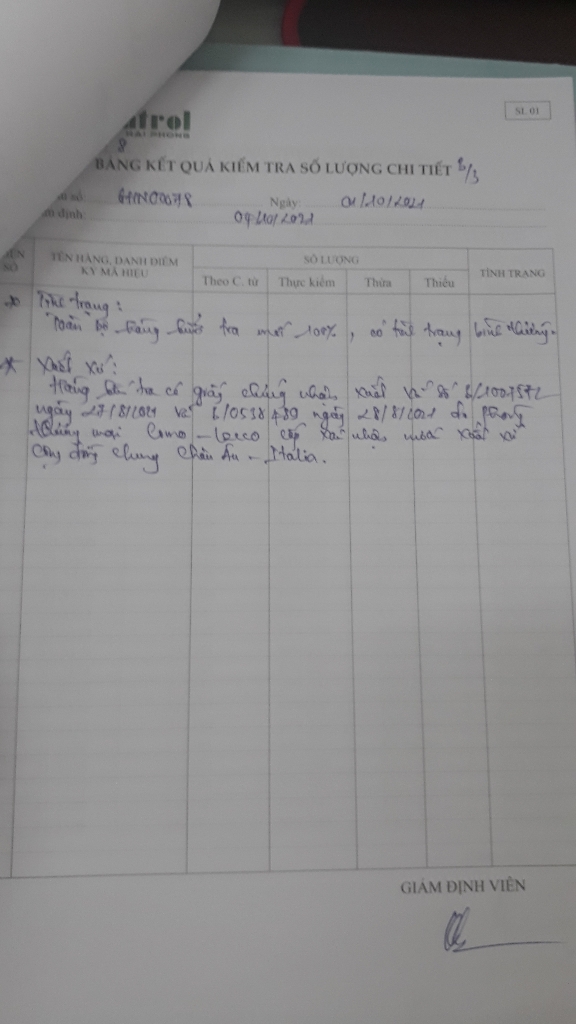 trol
HAI PHONG
SL 01
8
BẢNG KẾT QUẢ KIỂM TRA SỐ LƯỢNG CHI TIẾT 3/3
số: 61IN00078 Ngày: 01/10/2021
định: 04/10/2021
SỐ TÊN HÀNG, DANH ĐIỂM KÝ MÃ HIỆU SỐ LƯỢNG TÌNH TRẠNG
Theo C. từ Thực kiểm Thừa Thiếu
Tình trạng:
Toàn bộ hàng kiểm tra mới 100%, có tình trạng bình thường.
* Xuất xứ:
Hàng kiểm tra có giấy chứng nhận xuất xứ số
ngày 27/8/2021 và E/0538480 ngày 28/8/2021 do phòng
thương mại Como - Lecco cấp xác nhận xuất xứ
Cộng đồng chung Châu Âu - Italia.
GIÁM ĐỊNH VIÊN